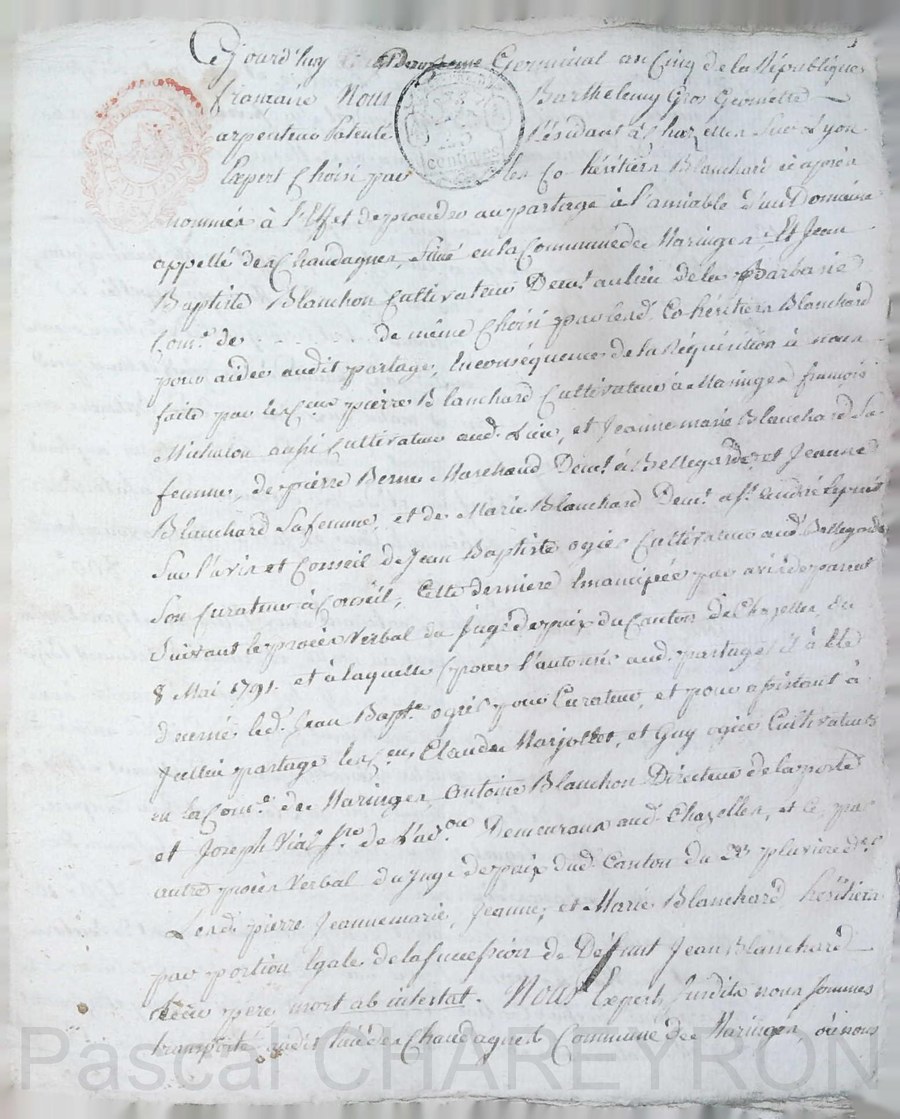 Cejourd'huy Germinal an Cinq de la République
française Nous Barthelemy Gros Geometre
arpenteur Patenté Résidant à Chazelles Sur Lyon
Expert Choisi par les Co-héritiers Blanchard ci après
nommés à l'Effet de procéder au partage à l'amiable d'un Domaine
appellé des Chaudagnes, Situé en la Commune de Maringes, Et Jean
Baptiste Blanchon Cultivateur Demt au lieu de la Barbarie
Come de ........ de même Choisi par lesd. Cohéritiers Blanchard
pour aider audit partage, Enconséquence de la Réquisition à nous
faite par les Cens pierre Blanchard Cultivateur à Maringes françois
Michalon aussi Cultivateur aud. Lieu, et Jeanne marie Blanchard Sa
femme, de pierre Berne Marchand Demt à Bellegarde et Jeanne
Blanchard Sa femme, et de Marie Blanchard Demt a St André
Sur l'avis et Conseil de Jean Baptiste ogier Cultivateur aud. Bellegarde
Son Curateur à Conseil, Cette dernière Emancipée par avis de parent
Suivant le procès Verbal du Juge de paix du Canton de Chazelles, du
8 Mai 1791. et à laquelle (pour l'autoriser aud. partage) il à été
décerné led. Jean Bapte ogier pour Curateur, et pour assistant à
Icellui partage les Cens Claude Marjollet, et Guy ogier Cultivateurs
en la Come de Maringes, Antoine Blanchon Directeur de la poste
et Joseph Vial Demeurans aud. Chazelles, et ce par
autre procès Verbal du Juge de paix dud. Canton du pluviose dr
Lesd. pierre, Jeanne marie, Jeanne, et Marie Blanchard héritiers
par portion Egale de la Succession de Défunt Jean Blanchard
Leur père mort ab intestat. Nous Experts Susdits nous Sommes
transporté audit lieu des Chaudagnes Commune de Maringes, où nous
Pascal CHAREYRON